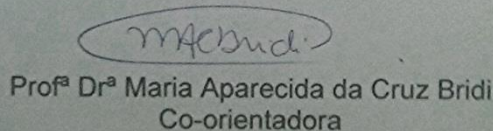 MACBridi
Profª Drª Maria Aparecida da Cruz Bridi
Co-orientadora